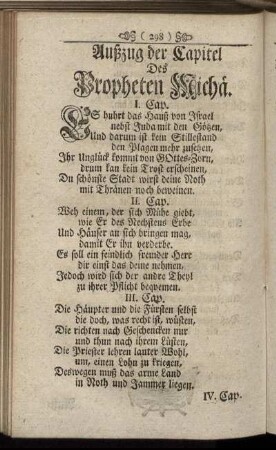 ( 298 )
Außzug der Capitel
Des
Propheten Michä.
I. Cap.
ES huhrt das Hauß von Israel
nebst Juda mit den Götzen,
Und darum ist kein Stillestand
den Plagen mehr zusetzen,
Ihr Unglück kommt von GOttes-Zorn,
drum kan kein Trost erscheinen,
Du schönste Stadt wirst deine Noth
mit Thränen noch beweinen.
II. Cap.
Weh einem, der sich Mühe giebt,
wie Er des Nechstens Erbe
Und Häuser an sich bringen mag,
damit Er ihn verderbe.
Es soll ein feindlich fremder Herr
dir einst das deine nehmen,
Jedoch wird sich der ander Theyl
zu ihrer Pflicht beqvemen.
III. Cap.
Die Häupter und die Fürsten selbst
die doch, was recht ist, wüsten,
Die richten nach Geschencken nur
und thun nach ihrem Lüsten,
Die Priester lehren lauter Wohl,
um, einen Lohn zu kriegen,
Deswegen muß das arme Land
in Noth und Jammer liegen.
IV. Cap.